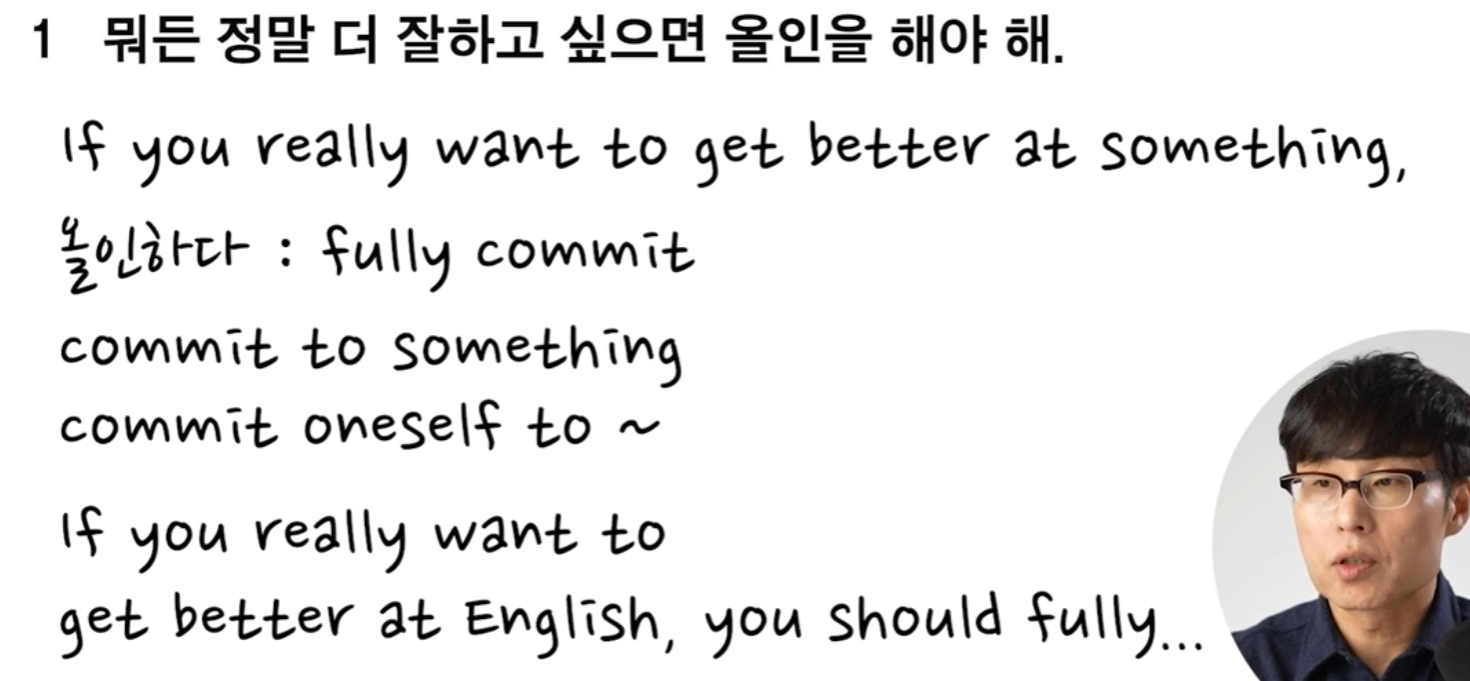 1 뭐든 정말 더 잘하고 싶으면 올인을 해야 해.
If you really want to get better at something,
올인하다 : fully commit
commit to something
commit oneself to ~
If you really want to
get better at English, you should fully...